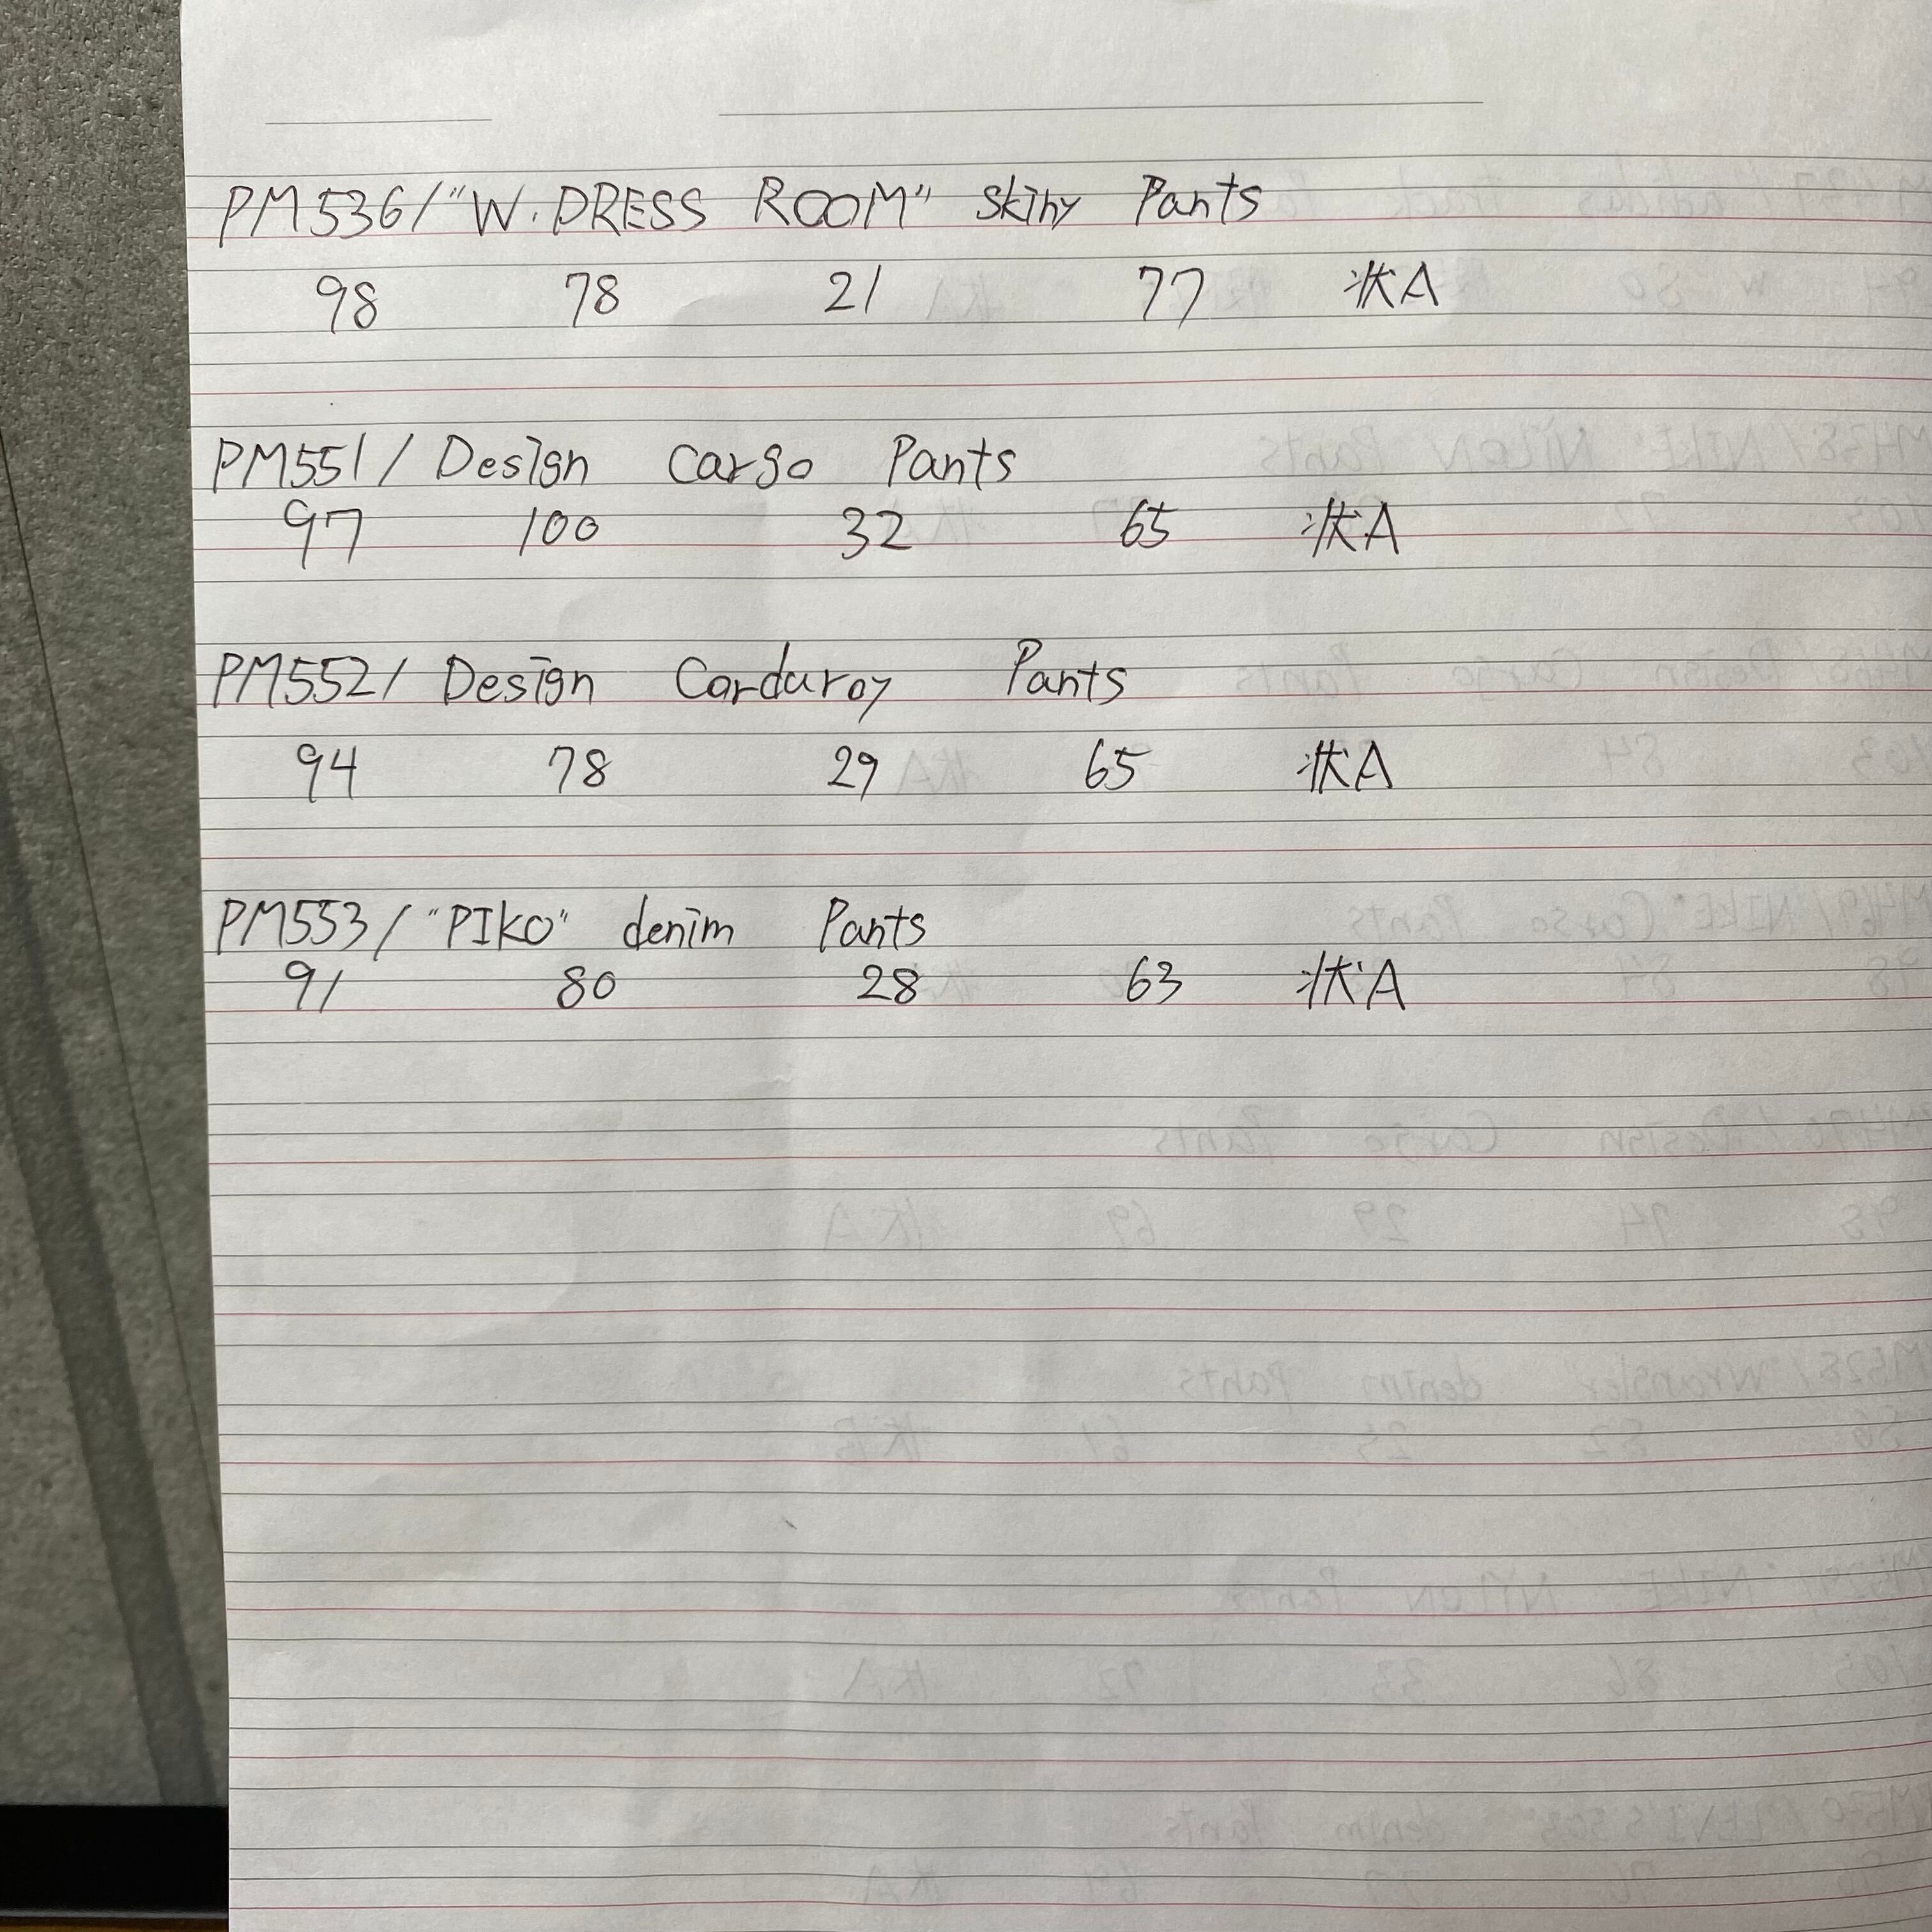 PM536/"W.DRESS ROOM" Skiny Pants
98 78 21 77 状A
PM551/ Design Cargo Pants
97 100 32 65 状A
PM552/ Design Corduroy Pants
94 78 29 65 状A
PM553/"PIKO" denim Pants
91 80 28 63 状A